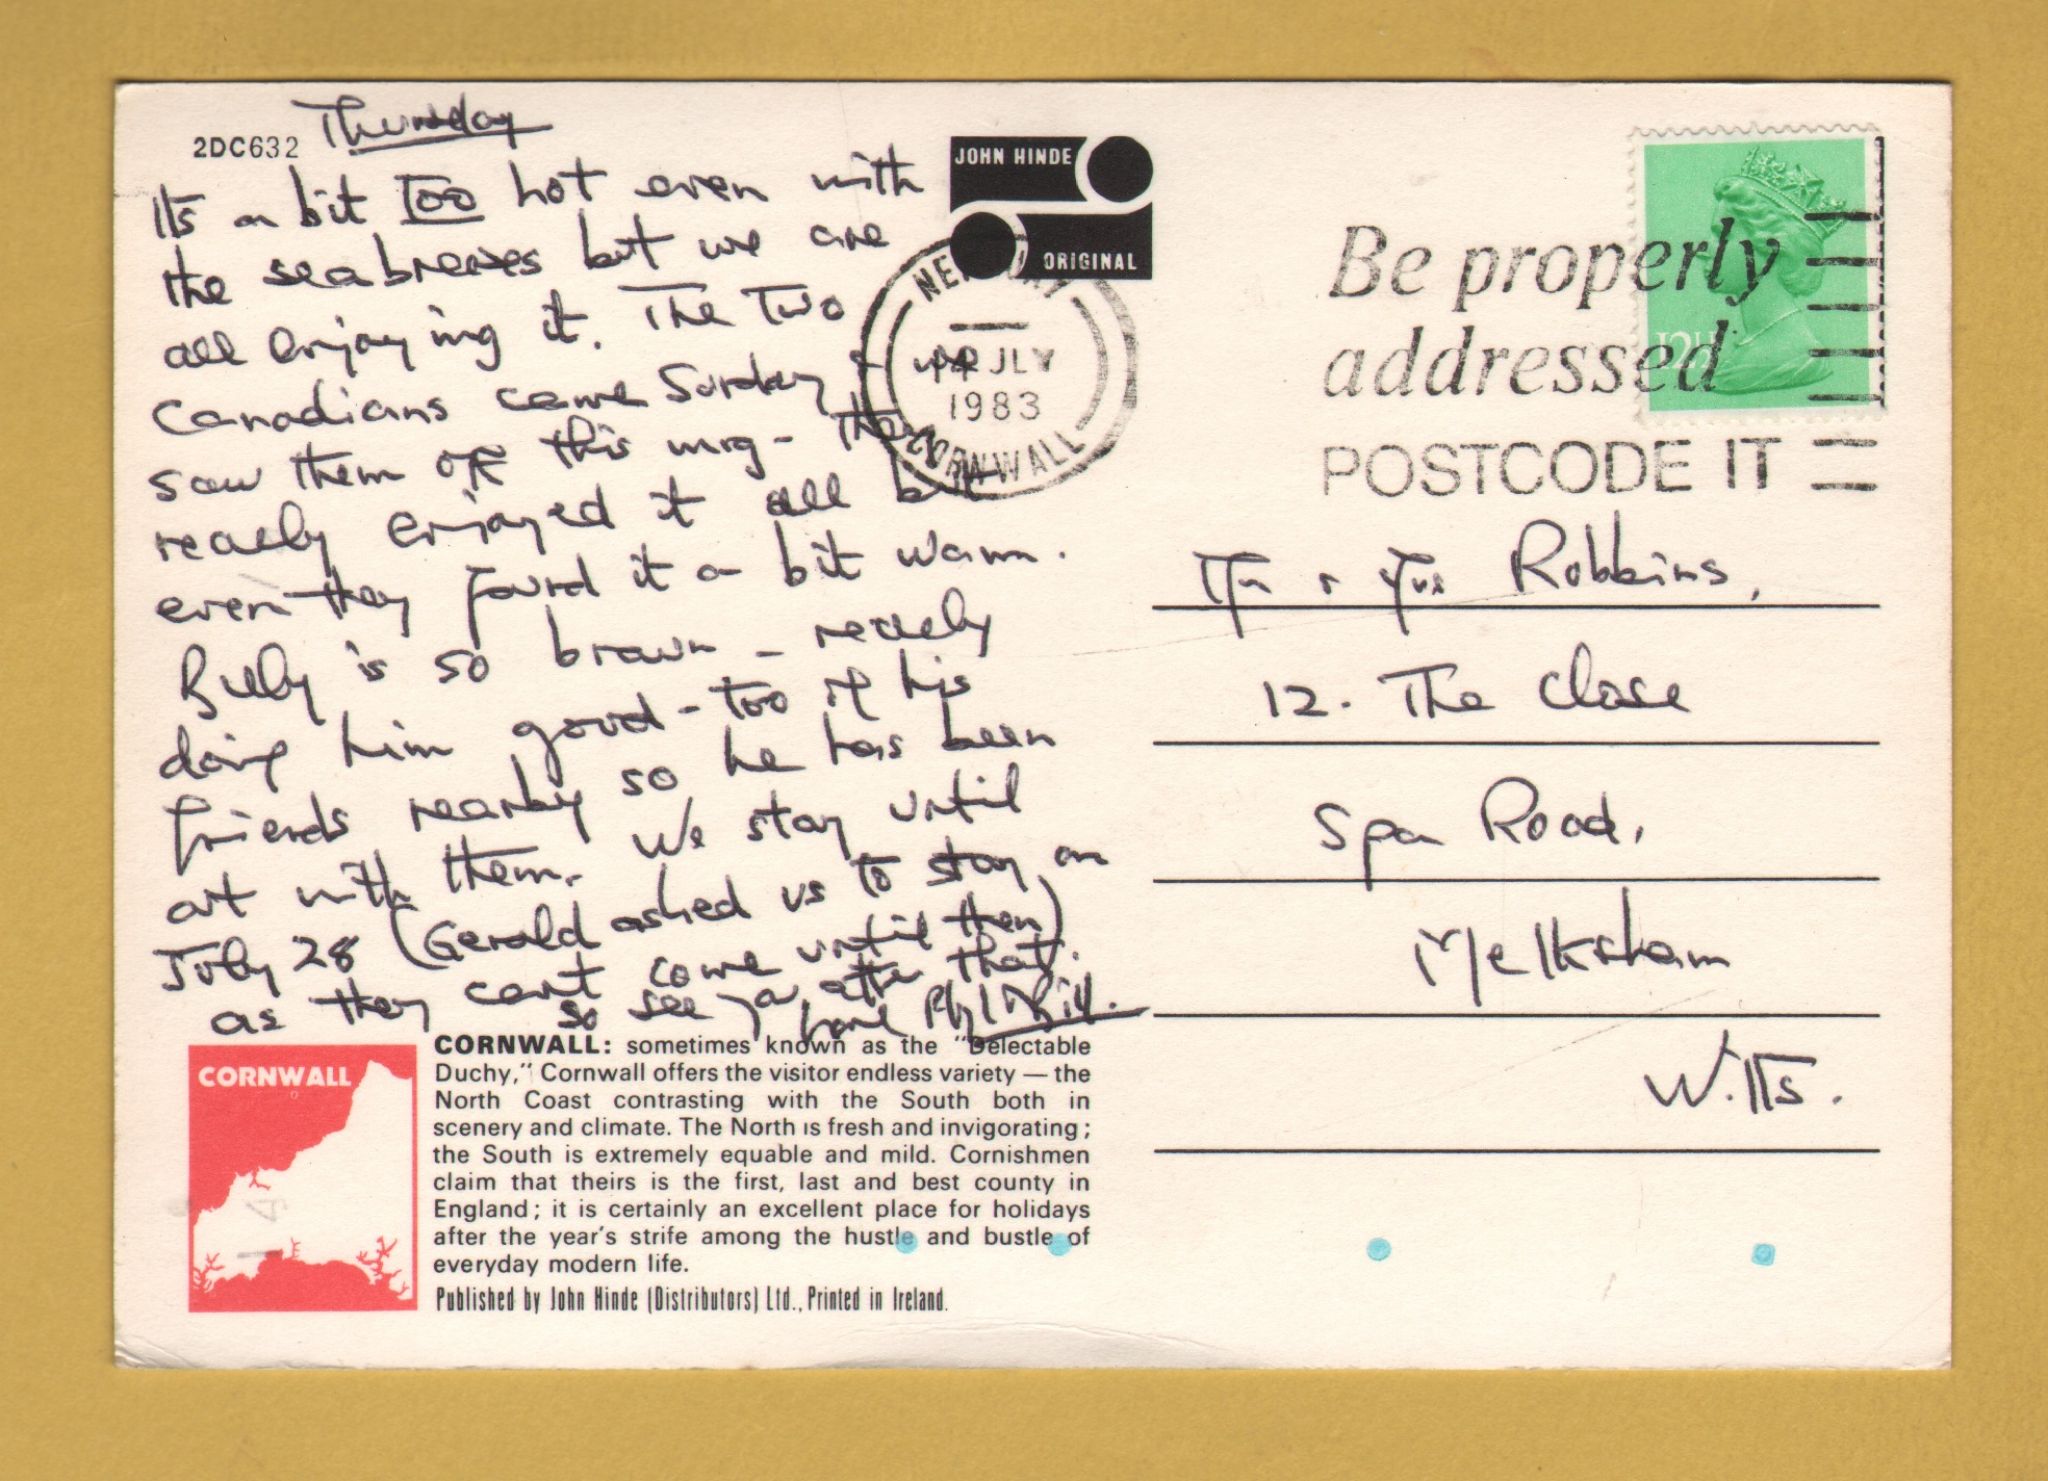 2DC632
Thursday
Its a bit too hot even with
the sea breezes but we are
all enjoying it. The two
Canadians came Sunday & we
saw them off this mrg - They
really enjoyed it all but
even they found it a bit warm.
Billy is so brown - really
doing him good - too if his
friends nearby so he has been
out with them. We stay until
July 28 (Gerald asked us to stay on
as they can't come until then)
so see ya after that.
love Phyl & Bill.
JOHN HINDE
ORIGINAL
JLY
1983
CORNWALL
Be properly
addressed
POSTCODE IT
12½
Mr & Mrs Robbins,
12. The Close
Spa Road,
Melksham
Wilts.
CORNWALL
CORNWALL: sometimes known as the "Delectable
Duchy," Cornwall offers the visitor endless variety — the
North Coast contrasting with the South both in
scenery and climate. The North is fresh and invigorating;
the South is extremely equable and mild. Cornishmen
claim that theirs is the first, last and best county in
England; it is certainly an excellent place for holidays
after the year's strife among the hustle and bustle of
everyday modern life.
Published by John Hinde (Distributors) Ltd., Printed in Ireland.